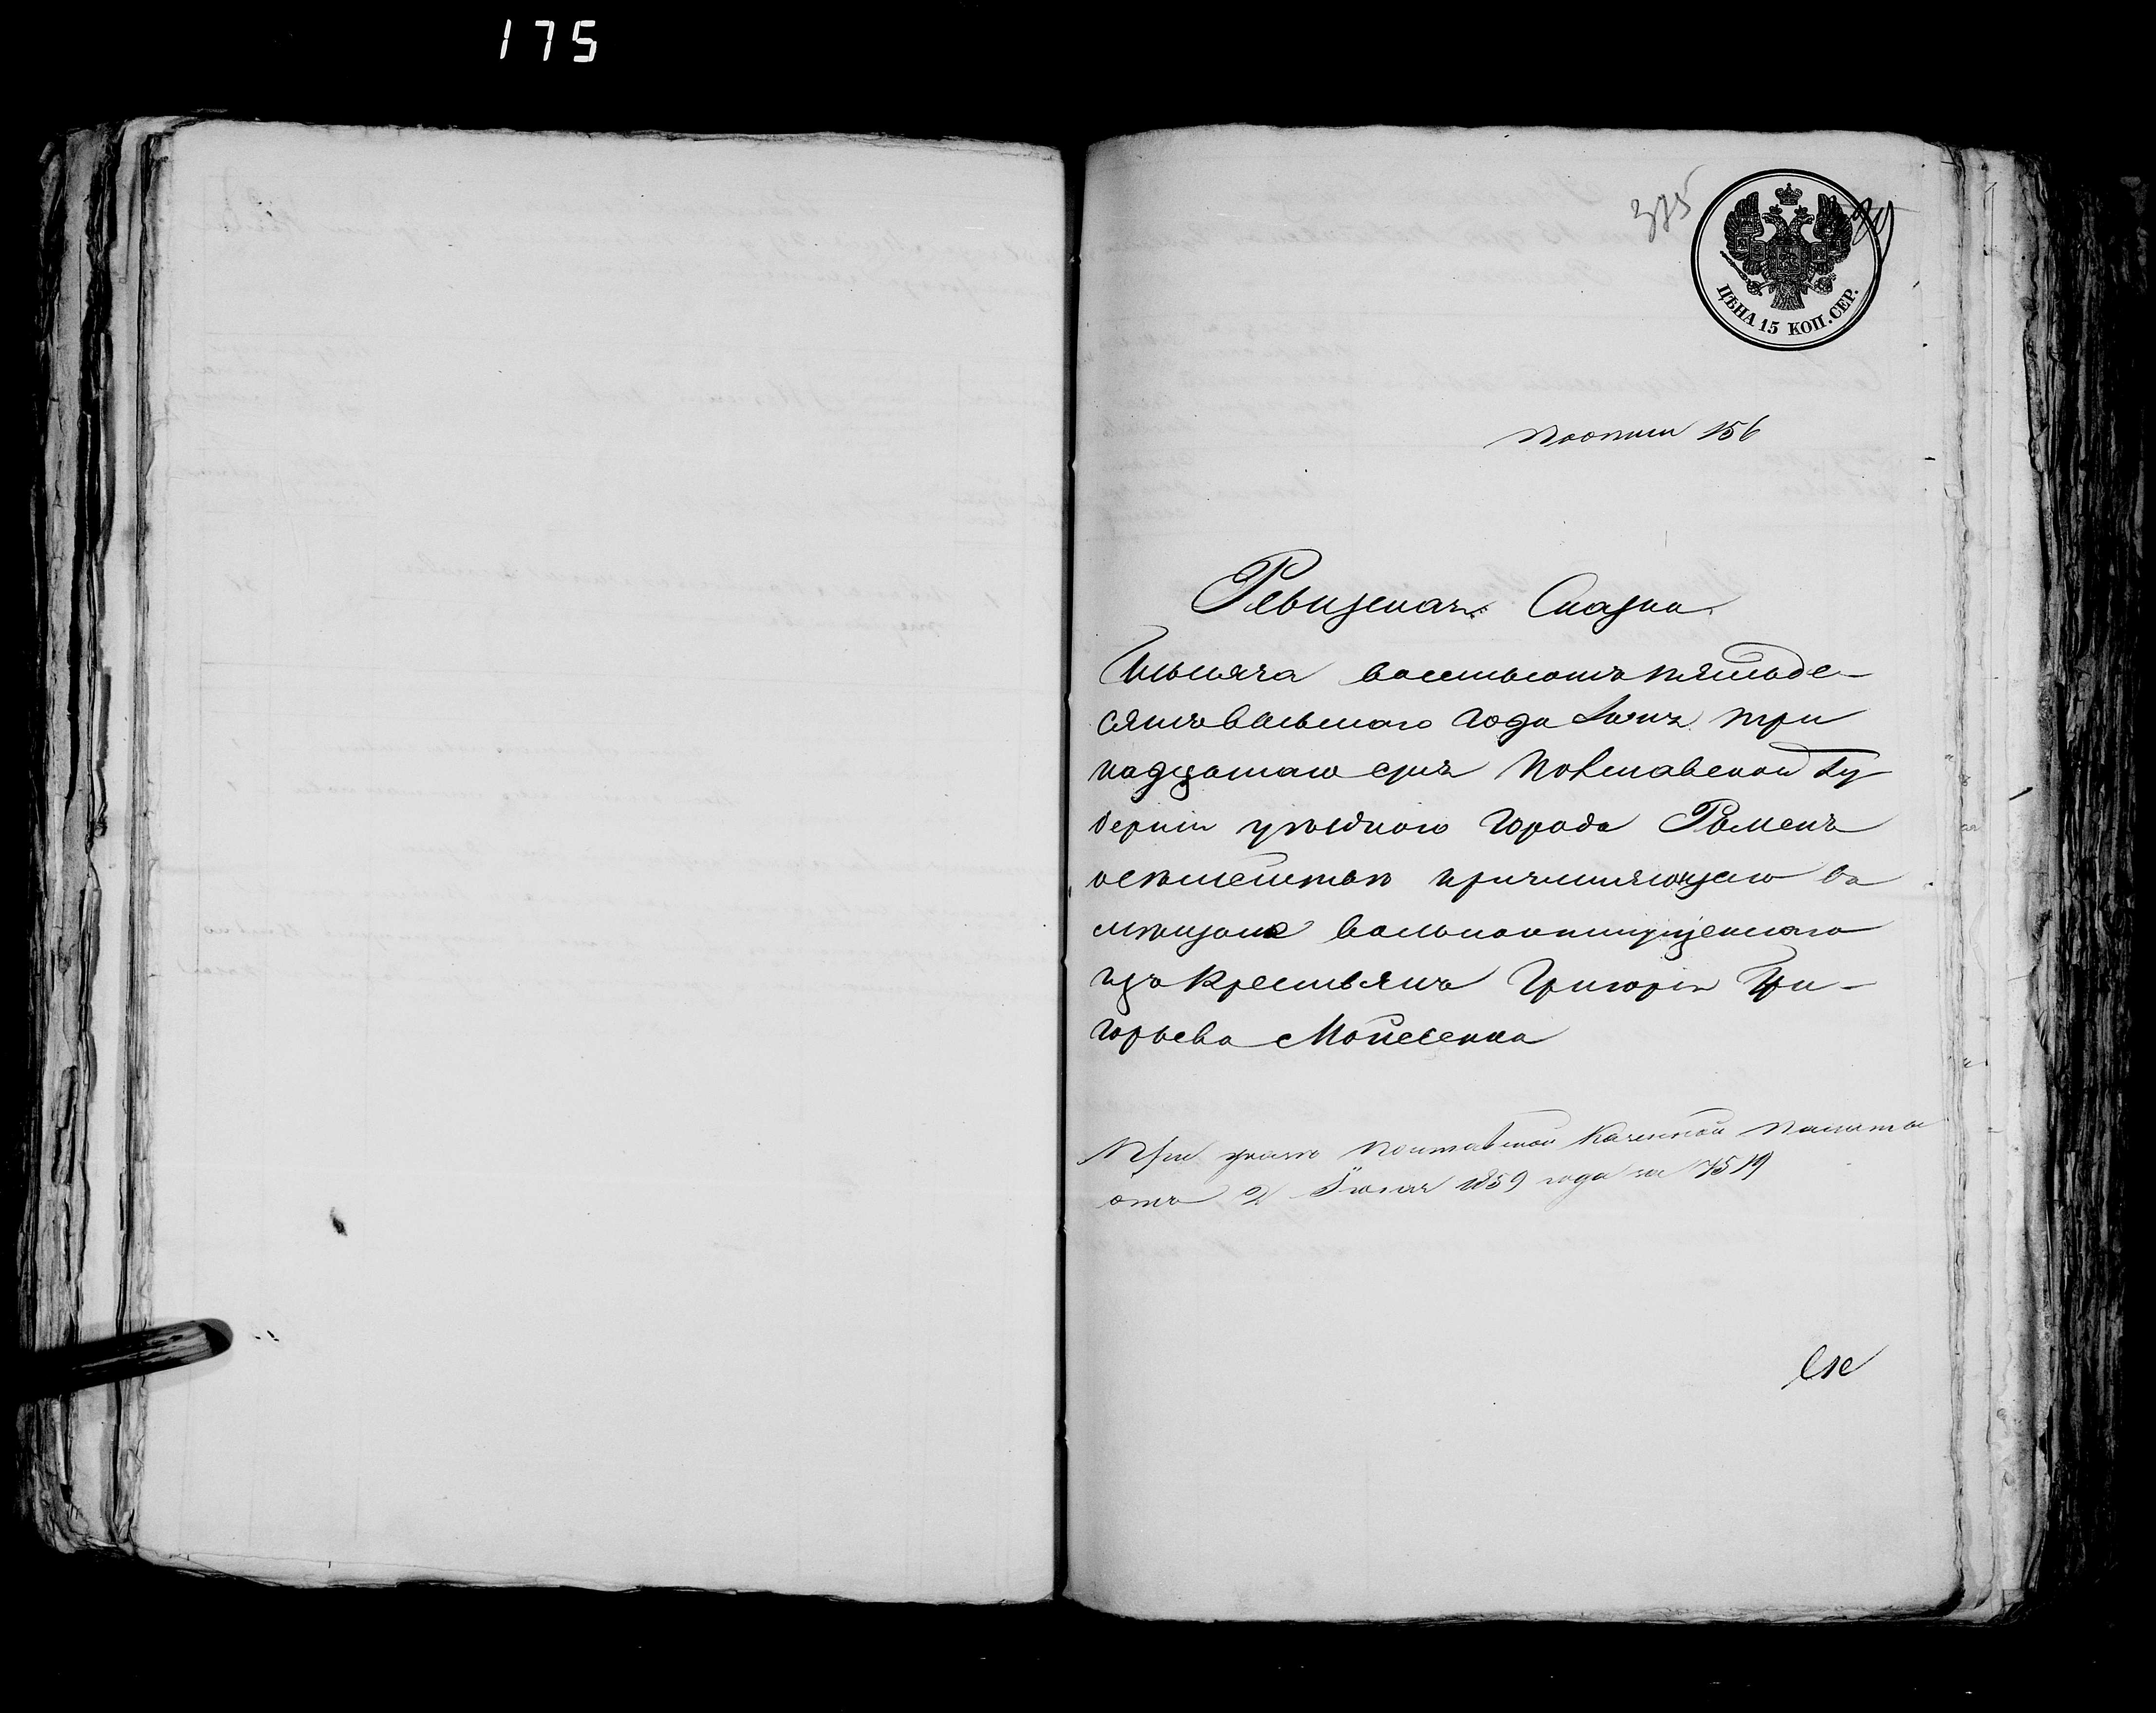 175
375
39
ЦѢНА 15 КОП. СЕР.
По описи 156
Ревизская Сказка
Тысяча восемьсотъ пятьде-
сятъ восьмаго года Іюня три
надцатаго дня Полтавской Гу
берніи уѣзднаго города Роменъ
о семействѣ причисляющаго въ
мѣщане вольноотпущеннаго
изъ крестьянъ Григорія Гри-
горьева Мойсеенка
При указѣ Полтавской Казенной Палаты
отъ 2 Іюня 1859 года за 7519